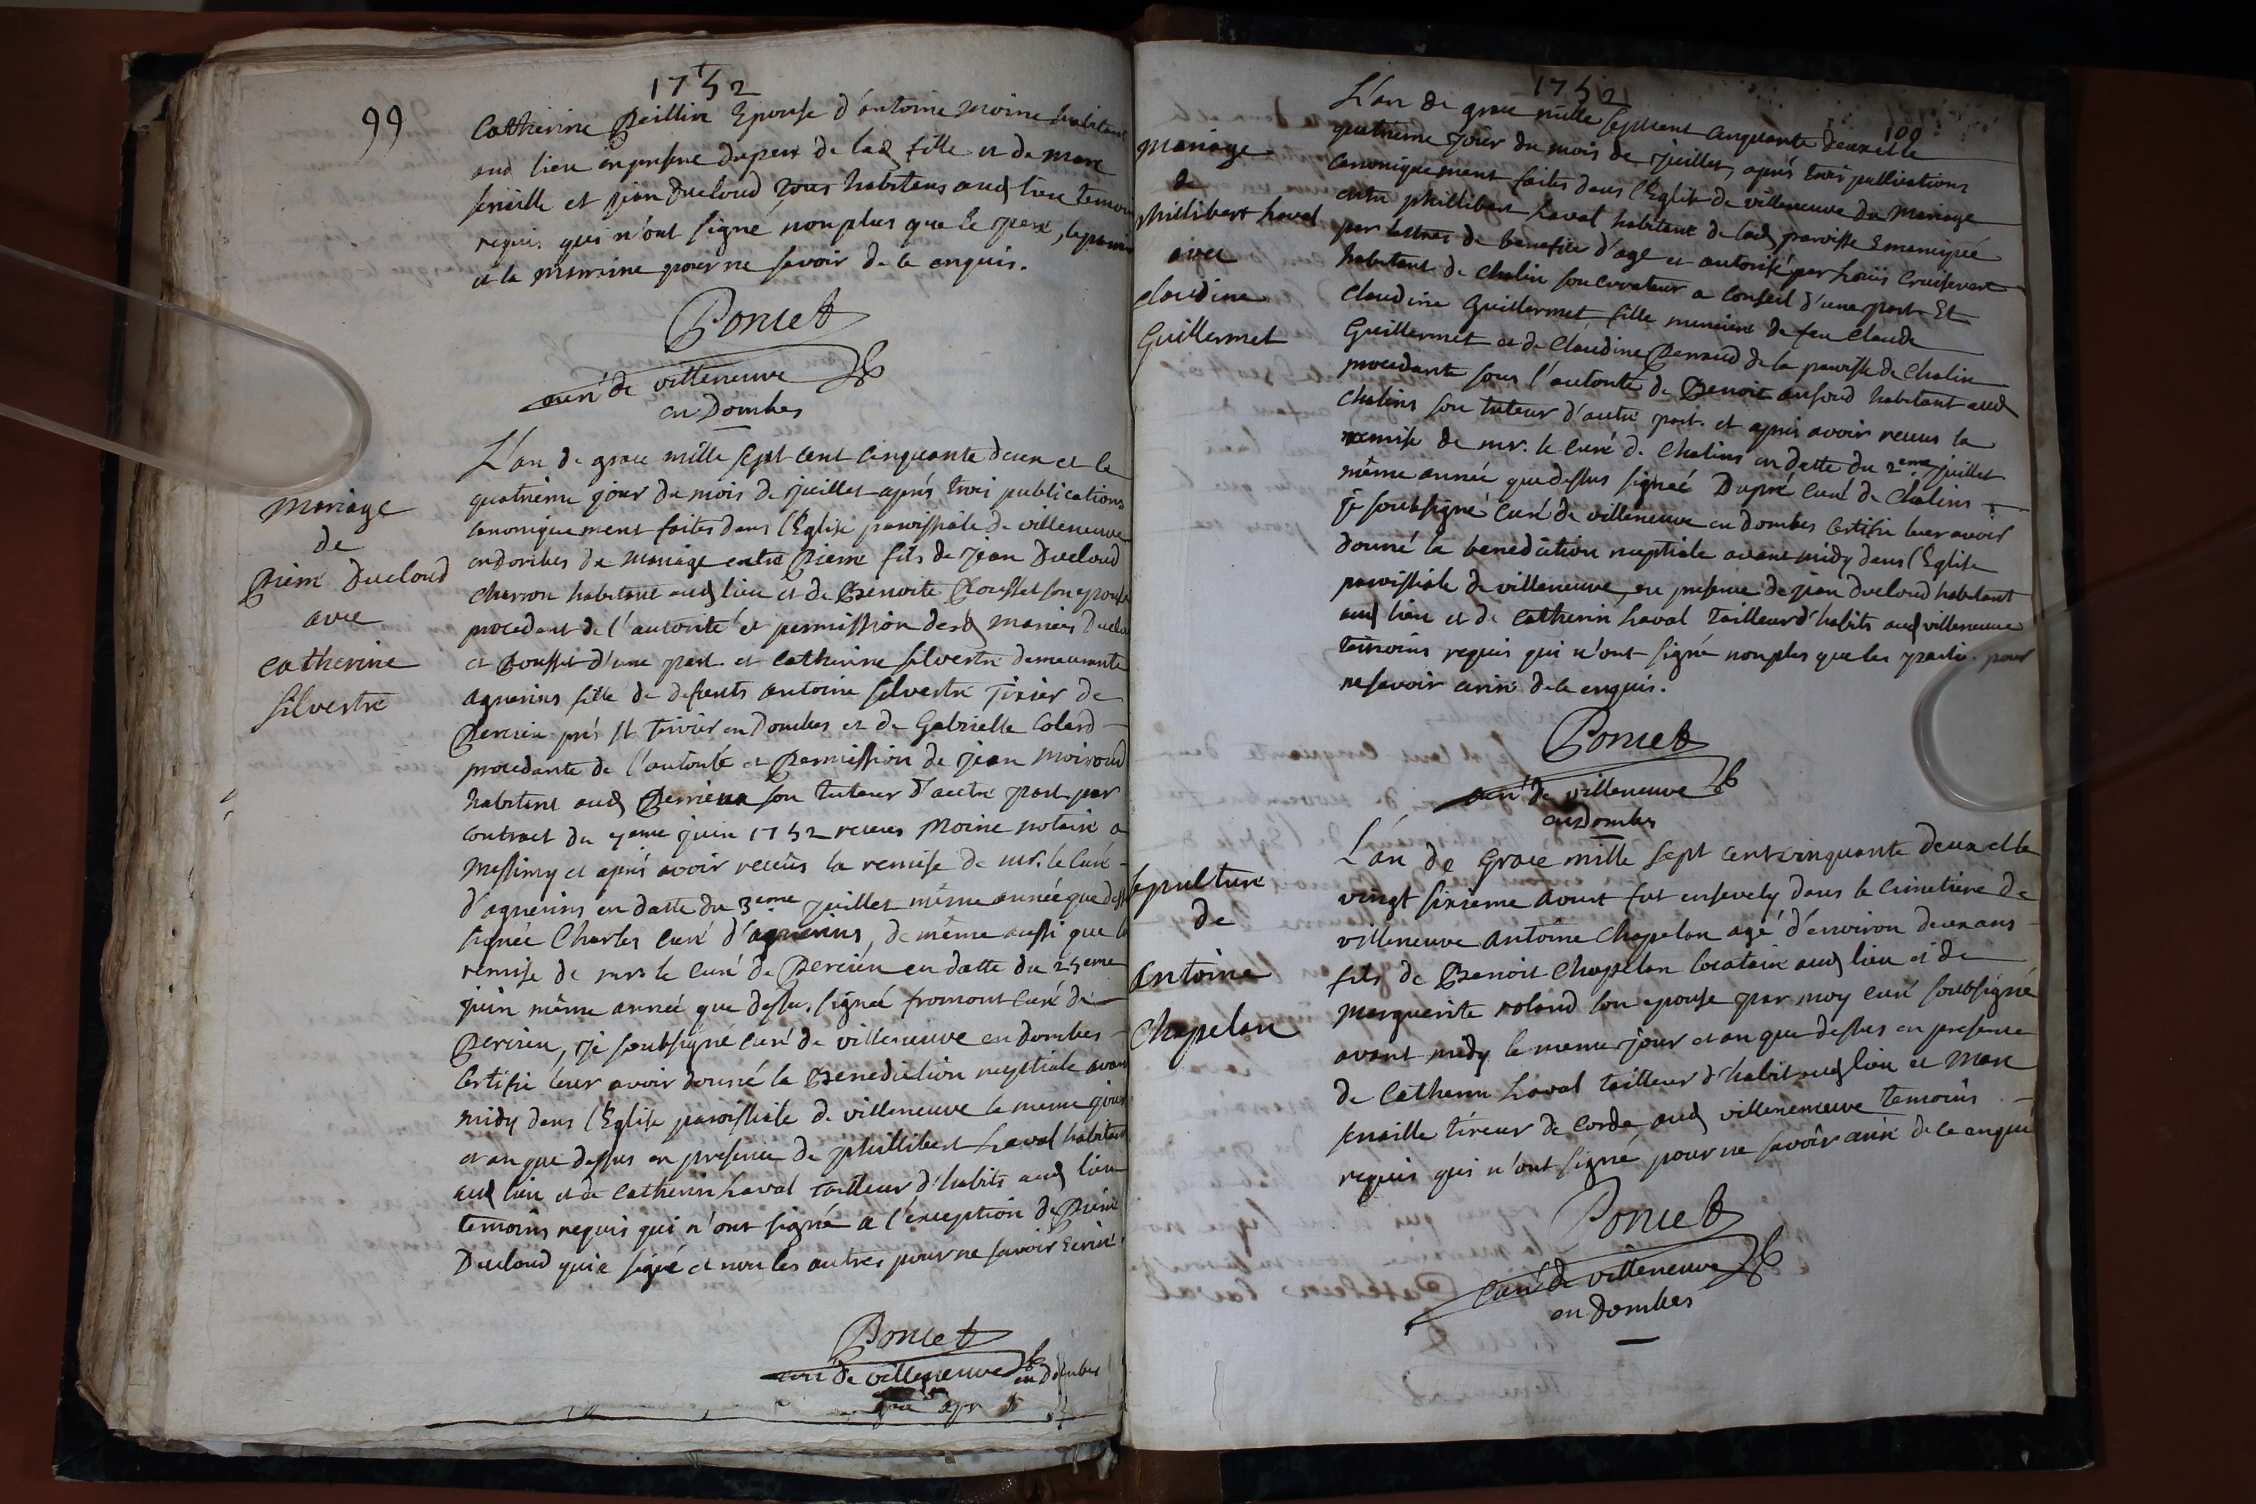 1752
99
Catherine Peillin Epouse d'antoine moine habitant
aud lieu en presence du pere de lad fille et de marc
senaille et jean Ducloud tous habitans aud lieu temoins
requis qui n'ont signé non plus que le pere, le parrin
et la marraine pour ne savoir de ce enquis.
Poncet
curé de villeneuve
en Dombes
mariage
de
Pierre Ducloud
avec
catherine
silvestre
L'an de grace mille sept cent cinquante deux et le
quatrieme jour du mois de juillet aprés trois publications
canoniquement faites dans l'Eglise paroissiale de villeneuve
en dombes du mariage entre Pierre fils de jean Ducloud
charron habitant aud lieu et de Benoite Rousset son epouse
procedant de l'autorité et permission desd mariés Ducloud
et Rousset d'une part et catherine silvestre demeurante
agnerins fille de defunts antoine silvestre tixier de
Percieu prés st trivier en Dombes et de Gabrielle Colard
procedante de l'autorité et Permission de jean moiroud
habitant aud Percieux son tuteur d'autre part par
contract du 7eme juin 1752 receus moine notaire a
messimy et aprés avoir receus la remise de mr. le curé
d'agnerins en datte du 3eme juillet même année que dess
signée Charles curé d'agnerins, de même aussi que la
remise de mr le curé de Percieu en datte du 25eme
juin même année que dessus signée fromont curé de
Percieu, je soubsigné curé de villeneuve en dombes
Certifie leur avoir donné la Benediction nuptiale avant
midy dans l'Eglise paroissiale de villeneuve le meme jour
et an que dessus en presence de phillibert Laval habitant
aud lieu et de catherin Laval tailleur d'habits aud lieu
temoins requis qui n'ont signé a l'exception de Pierre
Ducloud qui a signé et non les autres pour ne savoir Ecrire
Poncet
curé de villeneuve en dombes
1752
100
mariage
de
phillibert Laval
avec
claudine
Guillermet
L'an de grace mille sept cent cinquante deux et le
quatrieme jour du mois de juillet, aprés trois publications
canoniquement faites dans l'Eglise de villeneuve du mariage
entre phillibert Laval habitant de lad paroisse Emancipé
par lettres de benefice d'age et autorisé par Louis Cruisevert
habitant de chalin son curateur a conseil d'une part Et
claudine Guillermet fille mineure de feu claude
Guillermet et de claudine Perraud de la paroisse de chalin
procedante sous l'autorité de Benoit aufoud habitant aud
chalins son tuteur d'autre part. et aprés avoir receus la
remise de mr. le curé de chalins en datte du 2eme juillet
même année que dessus signée Dupré curé de chalins
je soubsigné curé de villeneuve en dombes Certifie leur avoir
donné la benediction nuptiale avant midy dans l'Eglise
paroissiale de villeneuve, en presence de jean ducloud habitant
aud lieu et de catherin Laval tailleur d'habits aud villeneuve
temoins requis qui n'ont signé non plus que les parties pour
ne savoir ecrire de ce enquis.
Poncet
curé de villeneuve
en Dombes
sepulture
de
antoine
chapelan
L'an de Grace mille sept cent cinquante deux et le
vingt sixieme aoust fut ensevely dans le cimetiere de
villeneuve antoine chapelan agé d'environ deux ans
fils de Benoit chapelan locataire aud lieu et de
marguerite roland son epouse par moy curé soubsigné
avant midy le meme jour et an que dessus en presence
de Catherin Laval tailleur d'habit aud lieu et marc
senaille tireur de corde aud villeneuve temoins
requis qui n'ont signé pour ne savoir ecrire de ce enqué
Poncet
curé de villeneuve
en Dombes